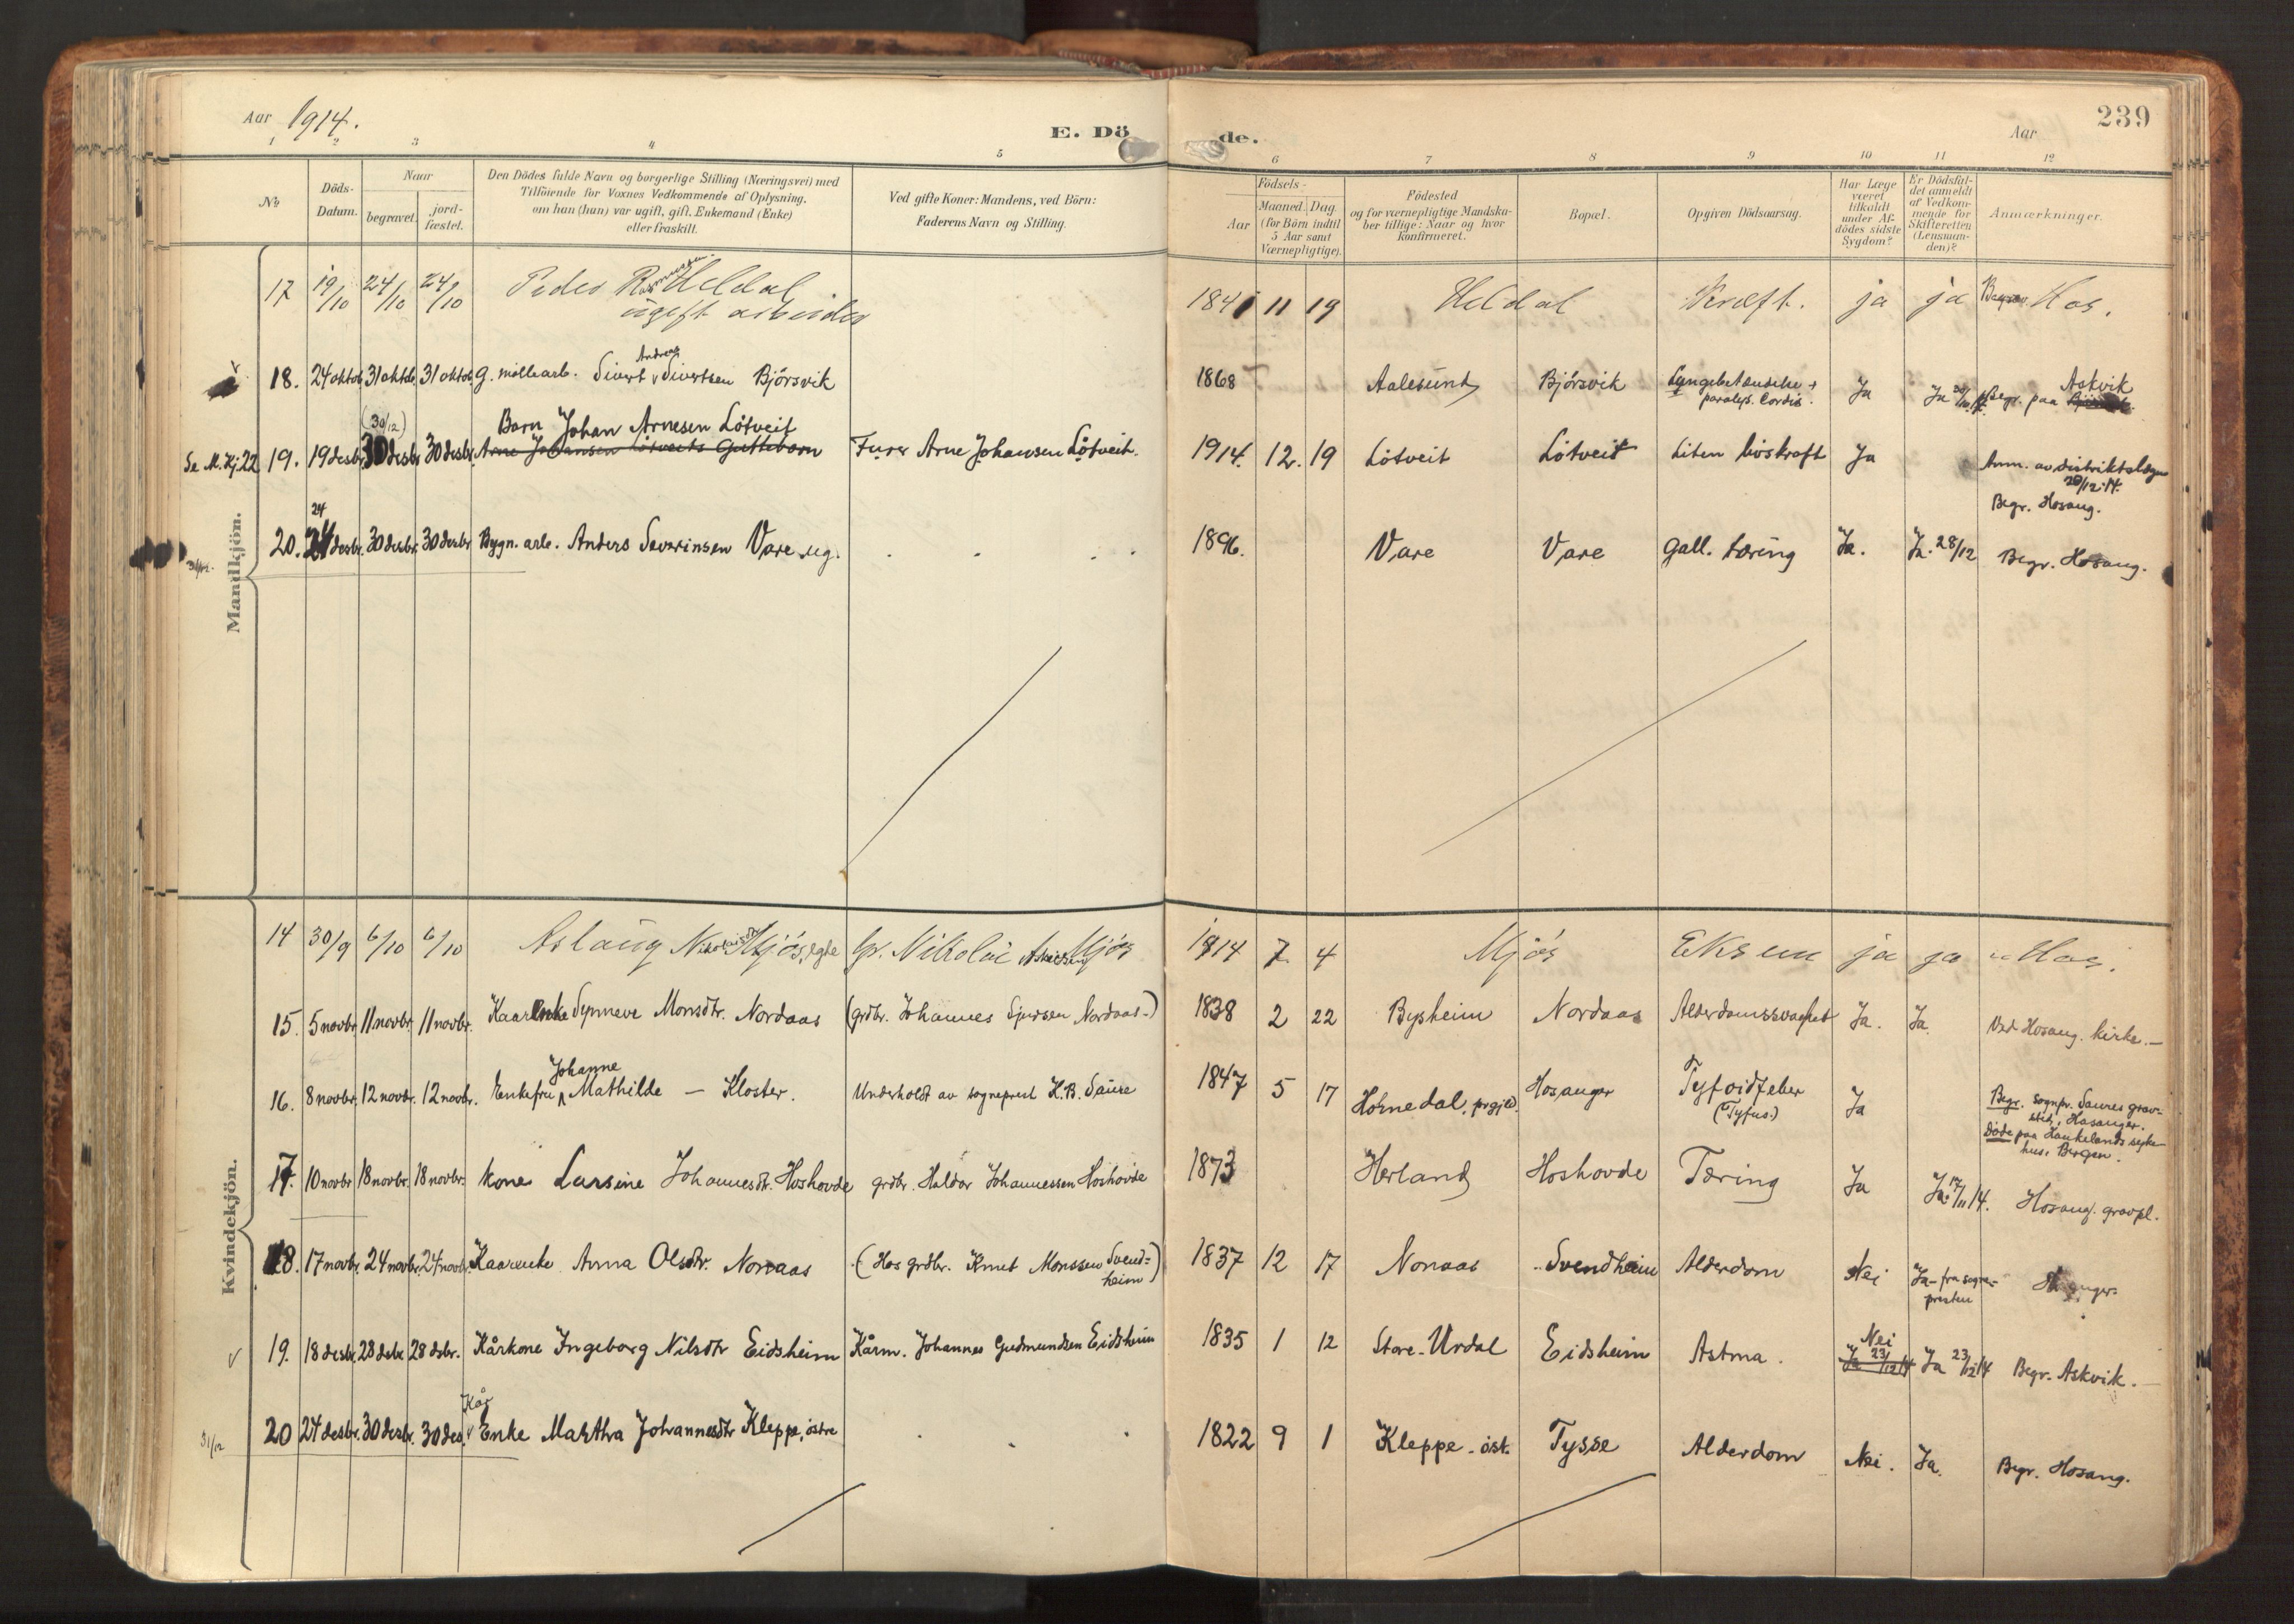 Aar 1914. E. Dö de. Aar 239
1 2 3 4 5 6 7 8 9 10 11 12
№
Döds-
Datum.
Naar
begravet.
jord-
fæstet.
Den Dödes fulde Navn og borgerlige Stilling (Næringsvei) med
Tilföiende for Voxnes Vedkommende af Oplysning,
om han (hun) var ugift, gift, Enkemand (Enke)
eller fraskilt.
Ved gifte Koner: Mandens, ved Börn:
Faderens Navn og Stilling.
Födsels-
Aar
Maaned. Dag.
(for Börn indtil
5 Aar samt
Værnepligtige).
Födested
og for værnepligtige Mandska-
ber tillige: Naar og hvor
Konfirmeret.
Bopæl.
Opgiven Dödsaarsag.
Har Læge
været
tilkaldt
under Af-
dödes sidste
Sygdom?
Er Dödsfal-
det anmeldt
af Vedkom-
mende for
Skifteretten
(Lensman-
den)?
Anmærkninger.
Mandkjön.
17 19/10 24/10 24/10 Peder Rasmussen Heldal 1841 11 19 Heldal Kræft. ja ja Begrav Hos.
ugift arbeider
18. 24 oktob 31 oktob 31 oktob. G. møllearb. Sivert Andreas Sivertsen Bjórsvik 1868 Aalesund Bjórsvik Lungebetændelse + Ja Ja Begr. paa Askvik
paralys. Cordis.
(30/12) Barn Johan Arnesen Lötveit
Se M. Kj 22 19. 19 desbr. 30 desbr 30 desbr. Arne Johansen Lötveits Guttebarn Furer Arne Johansen Lötveit. 1914. 12. 19 Lötveit Lötveit Liten livskraft Ja Anm. av distriktslægen
29/12.14.
Begr. Hosang.
24
20. 24 desbr. 30 desbr. 30 desbr Bygn. arb. Anders Severinsen Vare ug. 1896. Vare Vare Gall. tæring Ja. Ja. 28/12 Begr. Hosang.
Kvindekjön.
14 30/9 6/10 6/10 Aslaug Nikolaisdtr Mjós, egte Gr. Nikolai Mjós 1914 7 4 Mjós Eksem ja ja " Hos.
15. 5 novbr. 11 novbr. 11 novbr. Kaarenke Synneve Monsdtr. Nordaas (grdbr. Johannes Sjursen Nordaas-) 1838 2 22 Bysheim Nordaas Alderdomssvaghet Ja. Ja. Ved Hosang. kirke. —
16. 8 novbr. 12 novbr. 12 novbr. Enkefru Johanne Mathilde — Kloster. Underholdt av sogneprest K. B. Saure 1847 5 17 Hornedal, prgjld. Hosanger Tyfoidfeber Ja Begr. sognpr. Saures grav-
(Tyfus.) sted, Hosanger.
Døde paa Haukelands syke-
hus, Bergen.
17. 10 novbr 18 novbr. 18 novbr. kone Larsine Johannesdtr. Hoshovde grdbr. Haldor Johannessen Hoshovde 1873 Herland Hoshovde Tæring Ja Ja. 17/11 14. Hosang. gravpl.
18. 17 novbr. 24 novbr. 24 novbr. Kaarenke Anna Olsdtr. Nonaas (Hos grdbr. Knut Monssen Svend-
heim) 1837 12 17 Nonaas Svendheim Alderdom Nei Ja - fra sogne-
presten
19. 18 desbr. 28 desbr. 28 dsbr. Kårkone Ingeborg Nilsdtr Eidsheim Kårm. Johannes Gudmundsen Eidsheim 1835 1 12 Store-Urdal Eidsheim Astma. Nei Ja 23/12 14 Ja 23/12 14 Begr. Askvik.
31/12 20 24 desbr. 30 desbr. 30 des. Kår Enke Marthra Johannesdtr Kleppe, östre 1822 9 1 Kleppe-öst. Tysse Alderdom Nei. Ja. Begr. Hosang.